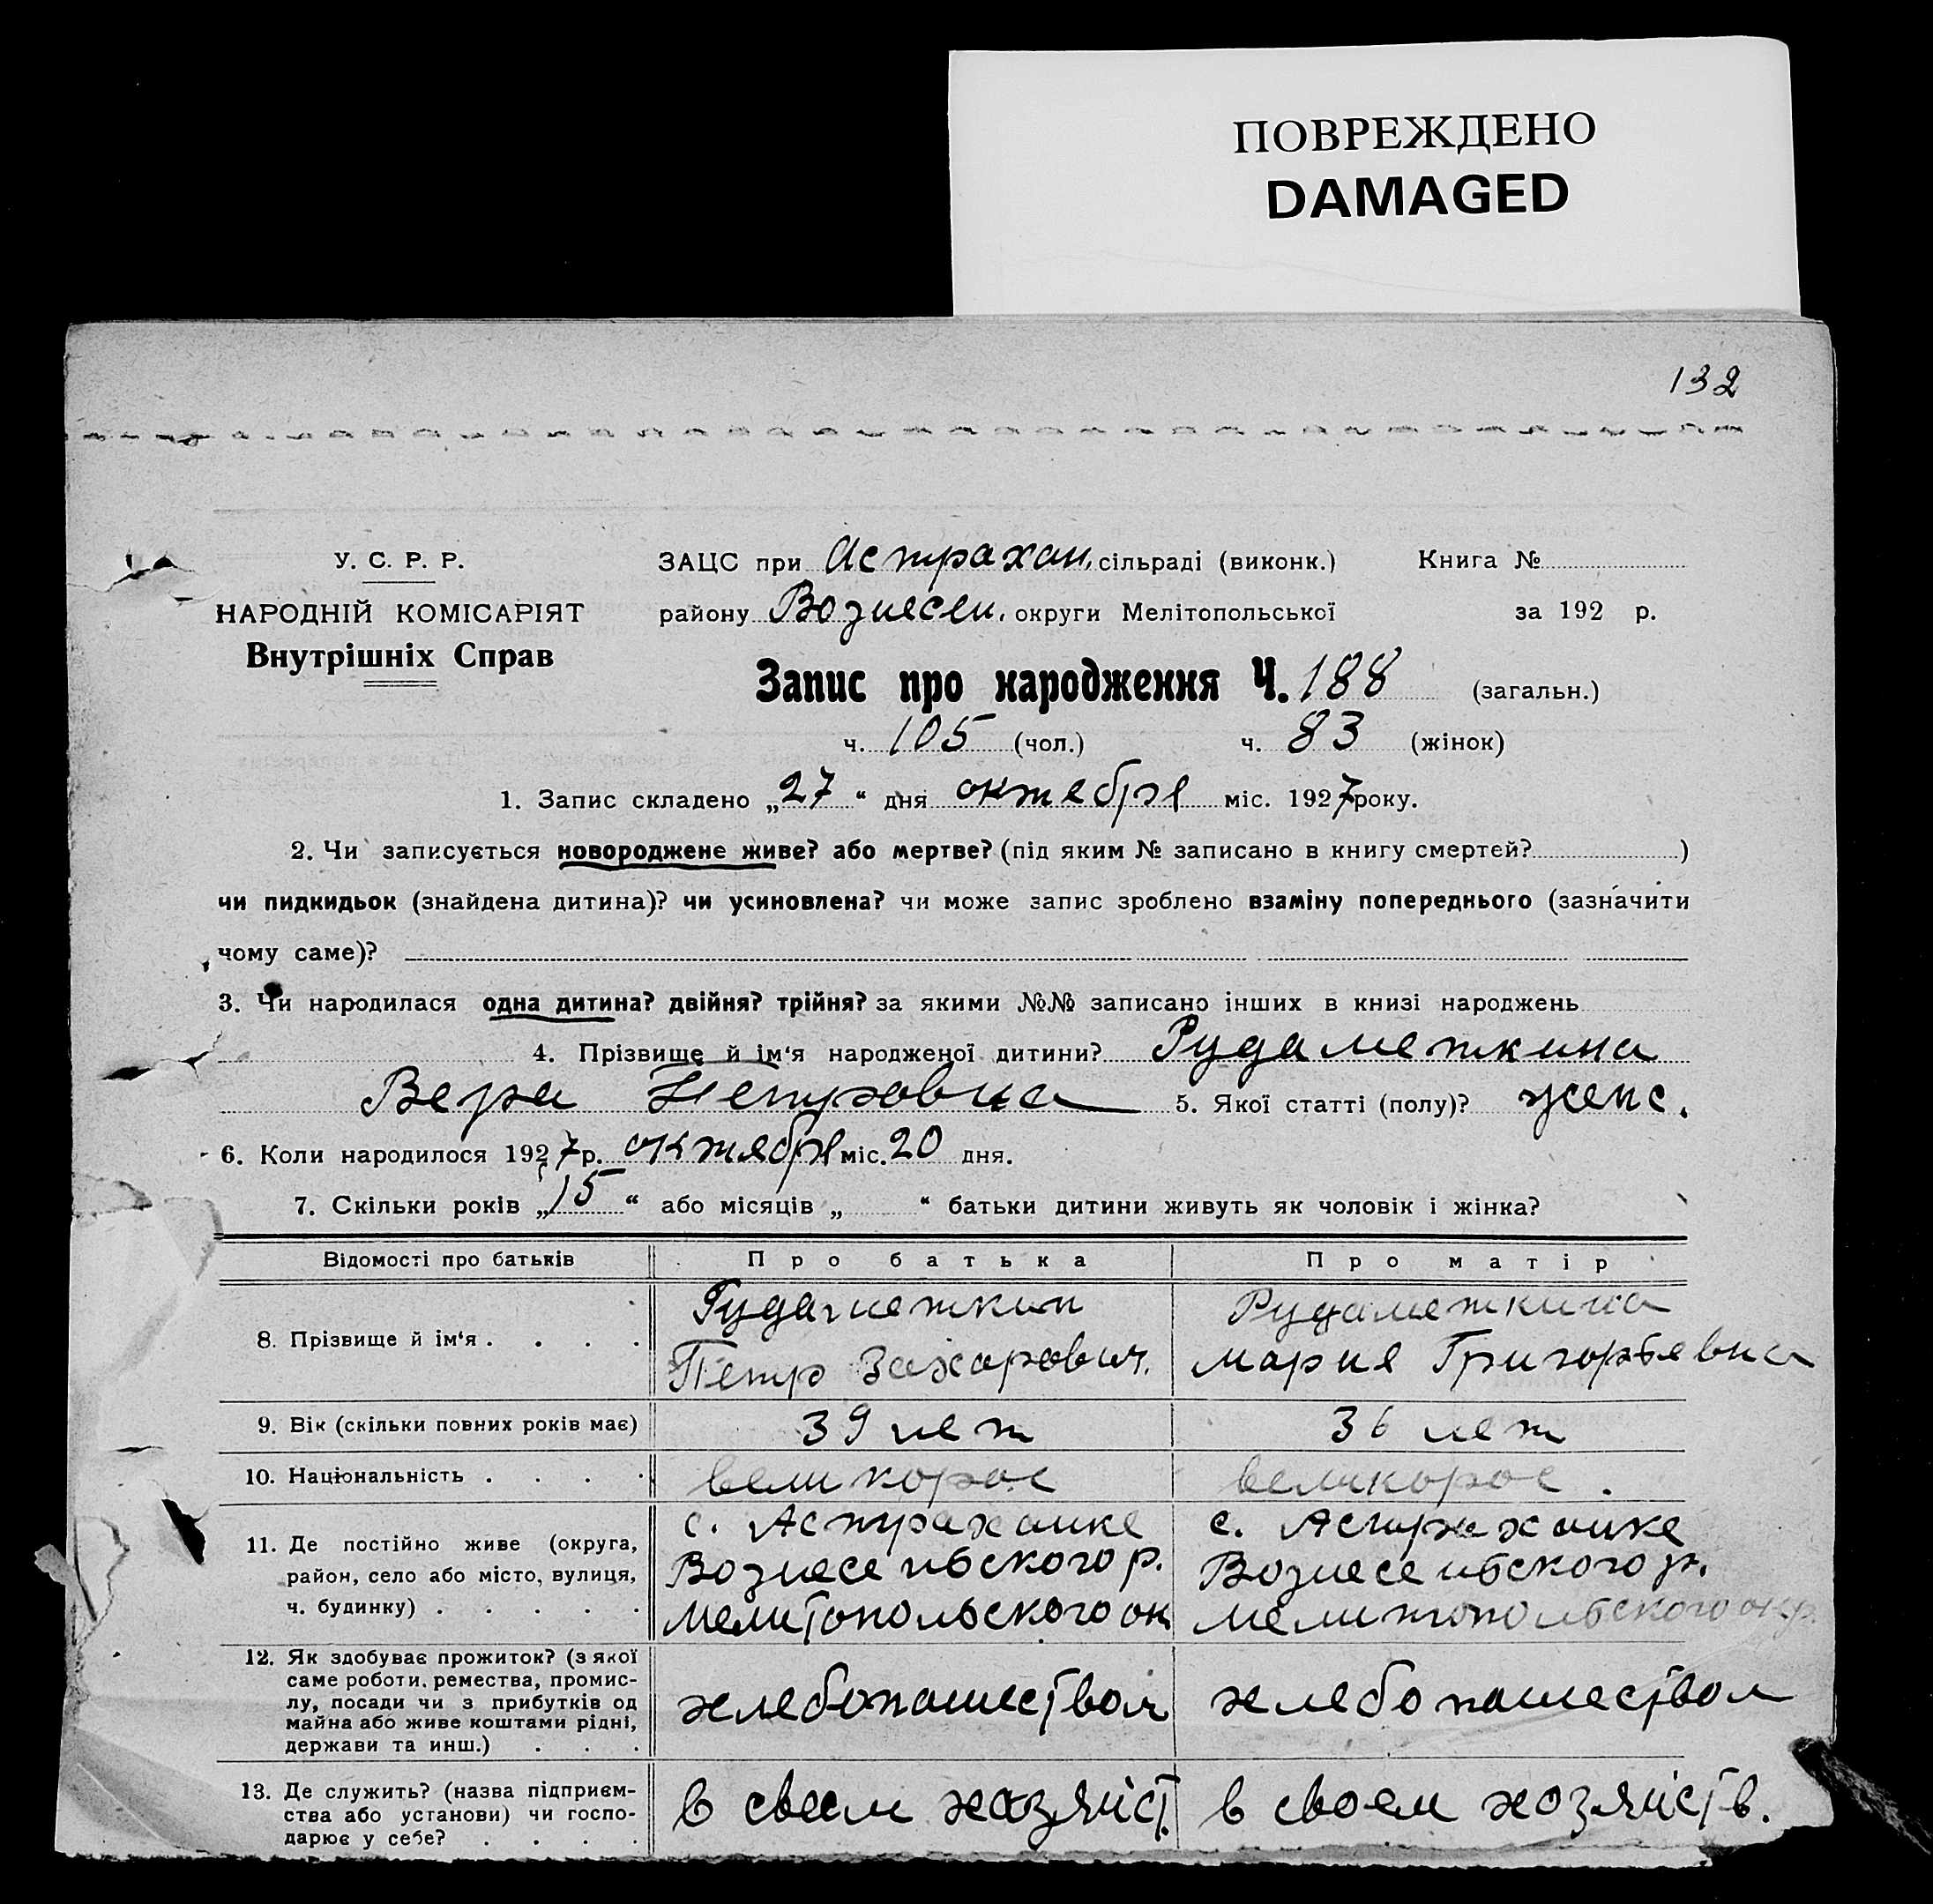 ПОВРЕЖДЕНО
DAMAGED
132
У. С. Р. Р.
НАРОДНІЙ КОМІСАРІЯТ
Внутрішніх Справ
ЗАЦС при Астрахан. сільраді (виконк.) Книга №
району Вознесен. округи Мелітопольської за 192 р.
Запис про народження Ч. 188 (загальн.)
ч. 105 (чол.) ч. 83 (жінок)
1. Запис складено „27“ дня октебря міс. 1927 року.
2. Чи записується новороджене живе? або мертве? (під яким № записано в книгу смертей? )
чи пидкидьок (знайдена дитина)? чи усиновлена? чи може запис зроблено взаміну попереднього (зазначити
чому саме)?
3. Чи народилася одна дитина? двійня? трійня? за якими №№ записано інших в книзі народжень
4. Прізвище й ім‘я народженої дитини? Рудаметкина
Вера Петровна 5. Якої статті (полу)? женс.
6. Коли народилося 1927 р. октября міс. 20 дня.
7. Скільки років „15“ або місяців „ “ батьки дитини живуть як чоловік і жінка?
Відомості про батьків Про батька Про матір
8. Прізвище й ім‘я . . . . Рудаметкин Рудаметкина
Петр Захарович. Мария Григорьевна
9. Вік (скільки повних років має) 39 лет 36 лет
10. Національність . . . . великорос великорос.
11. Де постійно живе (округа, с. Астраханке с. Астраханке
район, село або місто, вулиця, Вознесеньского р. Вознесеньского р.
ч. будинку) . . . . . Мелитопольского ок Мелитопольского окр.
12. Як здобуває прожиток? (з якої
саме роботи, ремества, промис-
лу, посади чи з прибутків од хлебопашеством хлебопашеством
майна або живе коштами рідні,
держави та инш.) . . .
13. Де служить? (назва підприєм-
ства або установи) чи госпо- в своем хозяйст. в своем хозяйств.
дарює у себе? . . . .